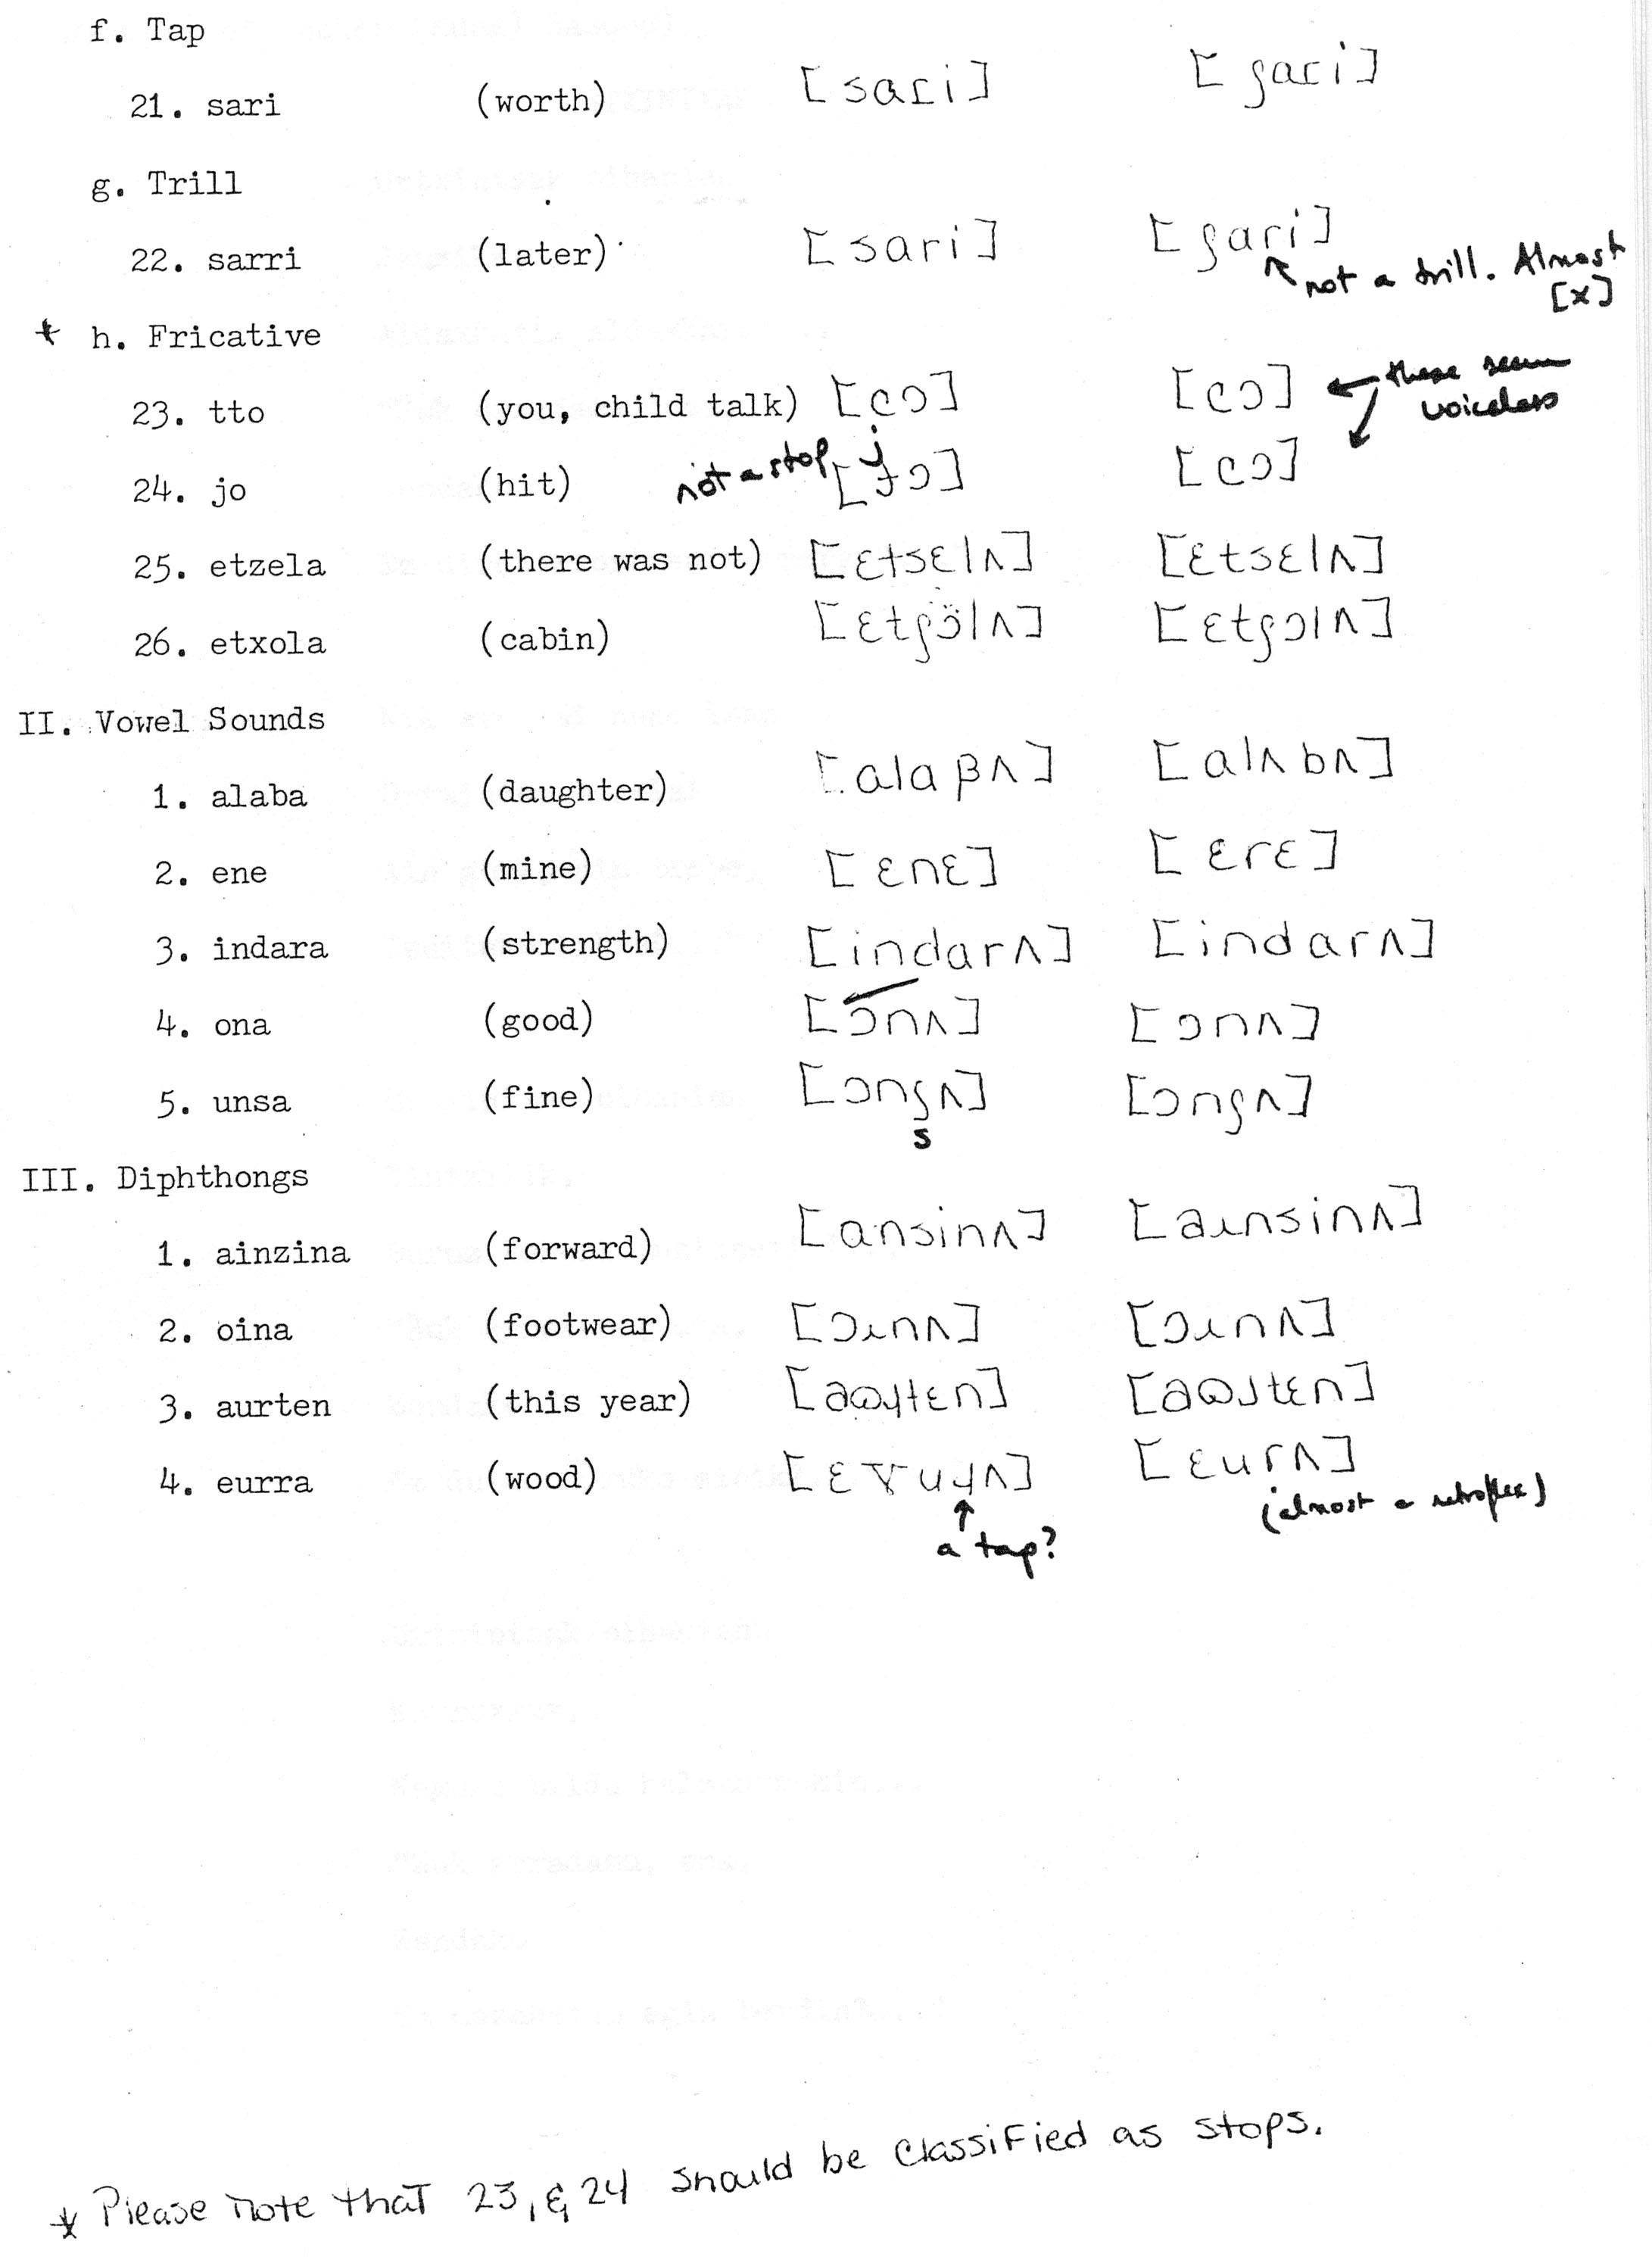 f. Tap
21. sari (worth) [saɾi] [ʂaɾi]
g. Trill
22. sarri (later) [sari] [ʂari]
not a trill. Almost
[x]
* h. Fricative
23. tto (you, child talk) [cɔ] [cɔ] these seem
voiceless
24. jo (hit) not a stop j [ɟɔ] [cɔ]
25. etzela (there was not) [ɛtsɛlʌ] [ɛtsɛlʌ]
26. etxola (cabin) [ɛtʂɔ̈lʌ] [ɛtʂɔlʌ]
II. Vowel Sounds
1. alaba (daughter) [alaβʌ] [alʌbʌ]
2. ene (mine) [ɛnɛ] [ɛrɛ]
3. indara (strength) [indarʌ] [indarʌ]
4. ona (good) [ɔnʌ] [ɔnʌ]
5. unsa (fine) [ɔnʂʌ] [ɔnʂʌ]
s
III. Diphthongs
1. ainzina (forward) [ansinʌ] [aɪnsinʌ]
2. oina (footwear) [ɔɪnʌ] [ɔɪnʌ]
3. aurten (this year)
4. eurra (wood) [ɛurʌ]
a tap? (almost a retroflex)
* Please note that 23, & 24 should be classified as stops.